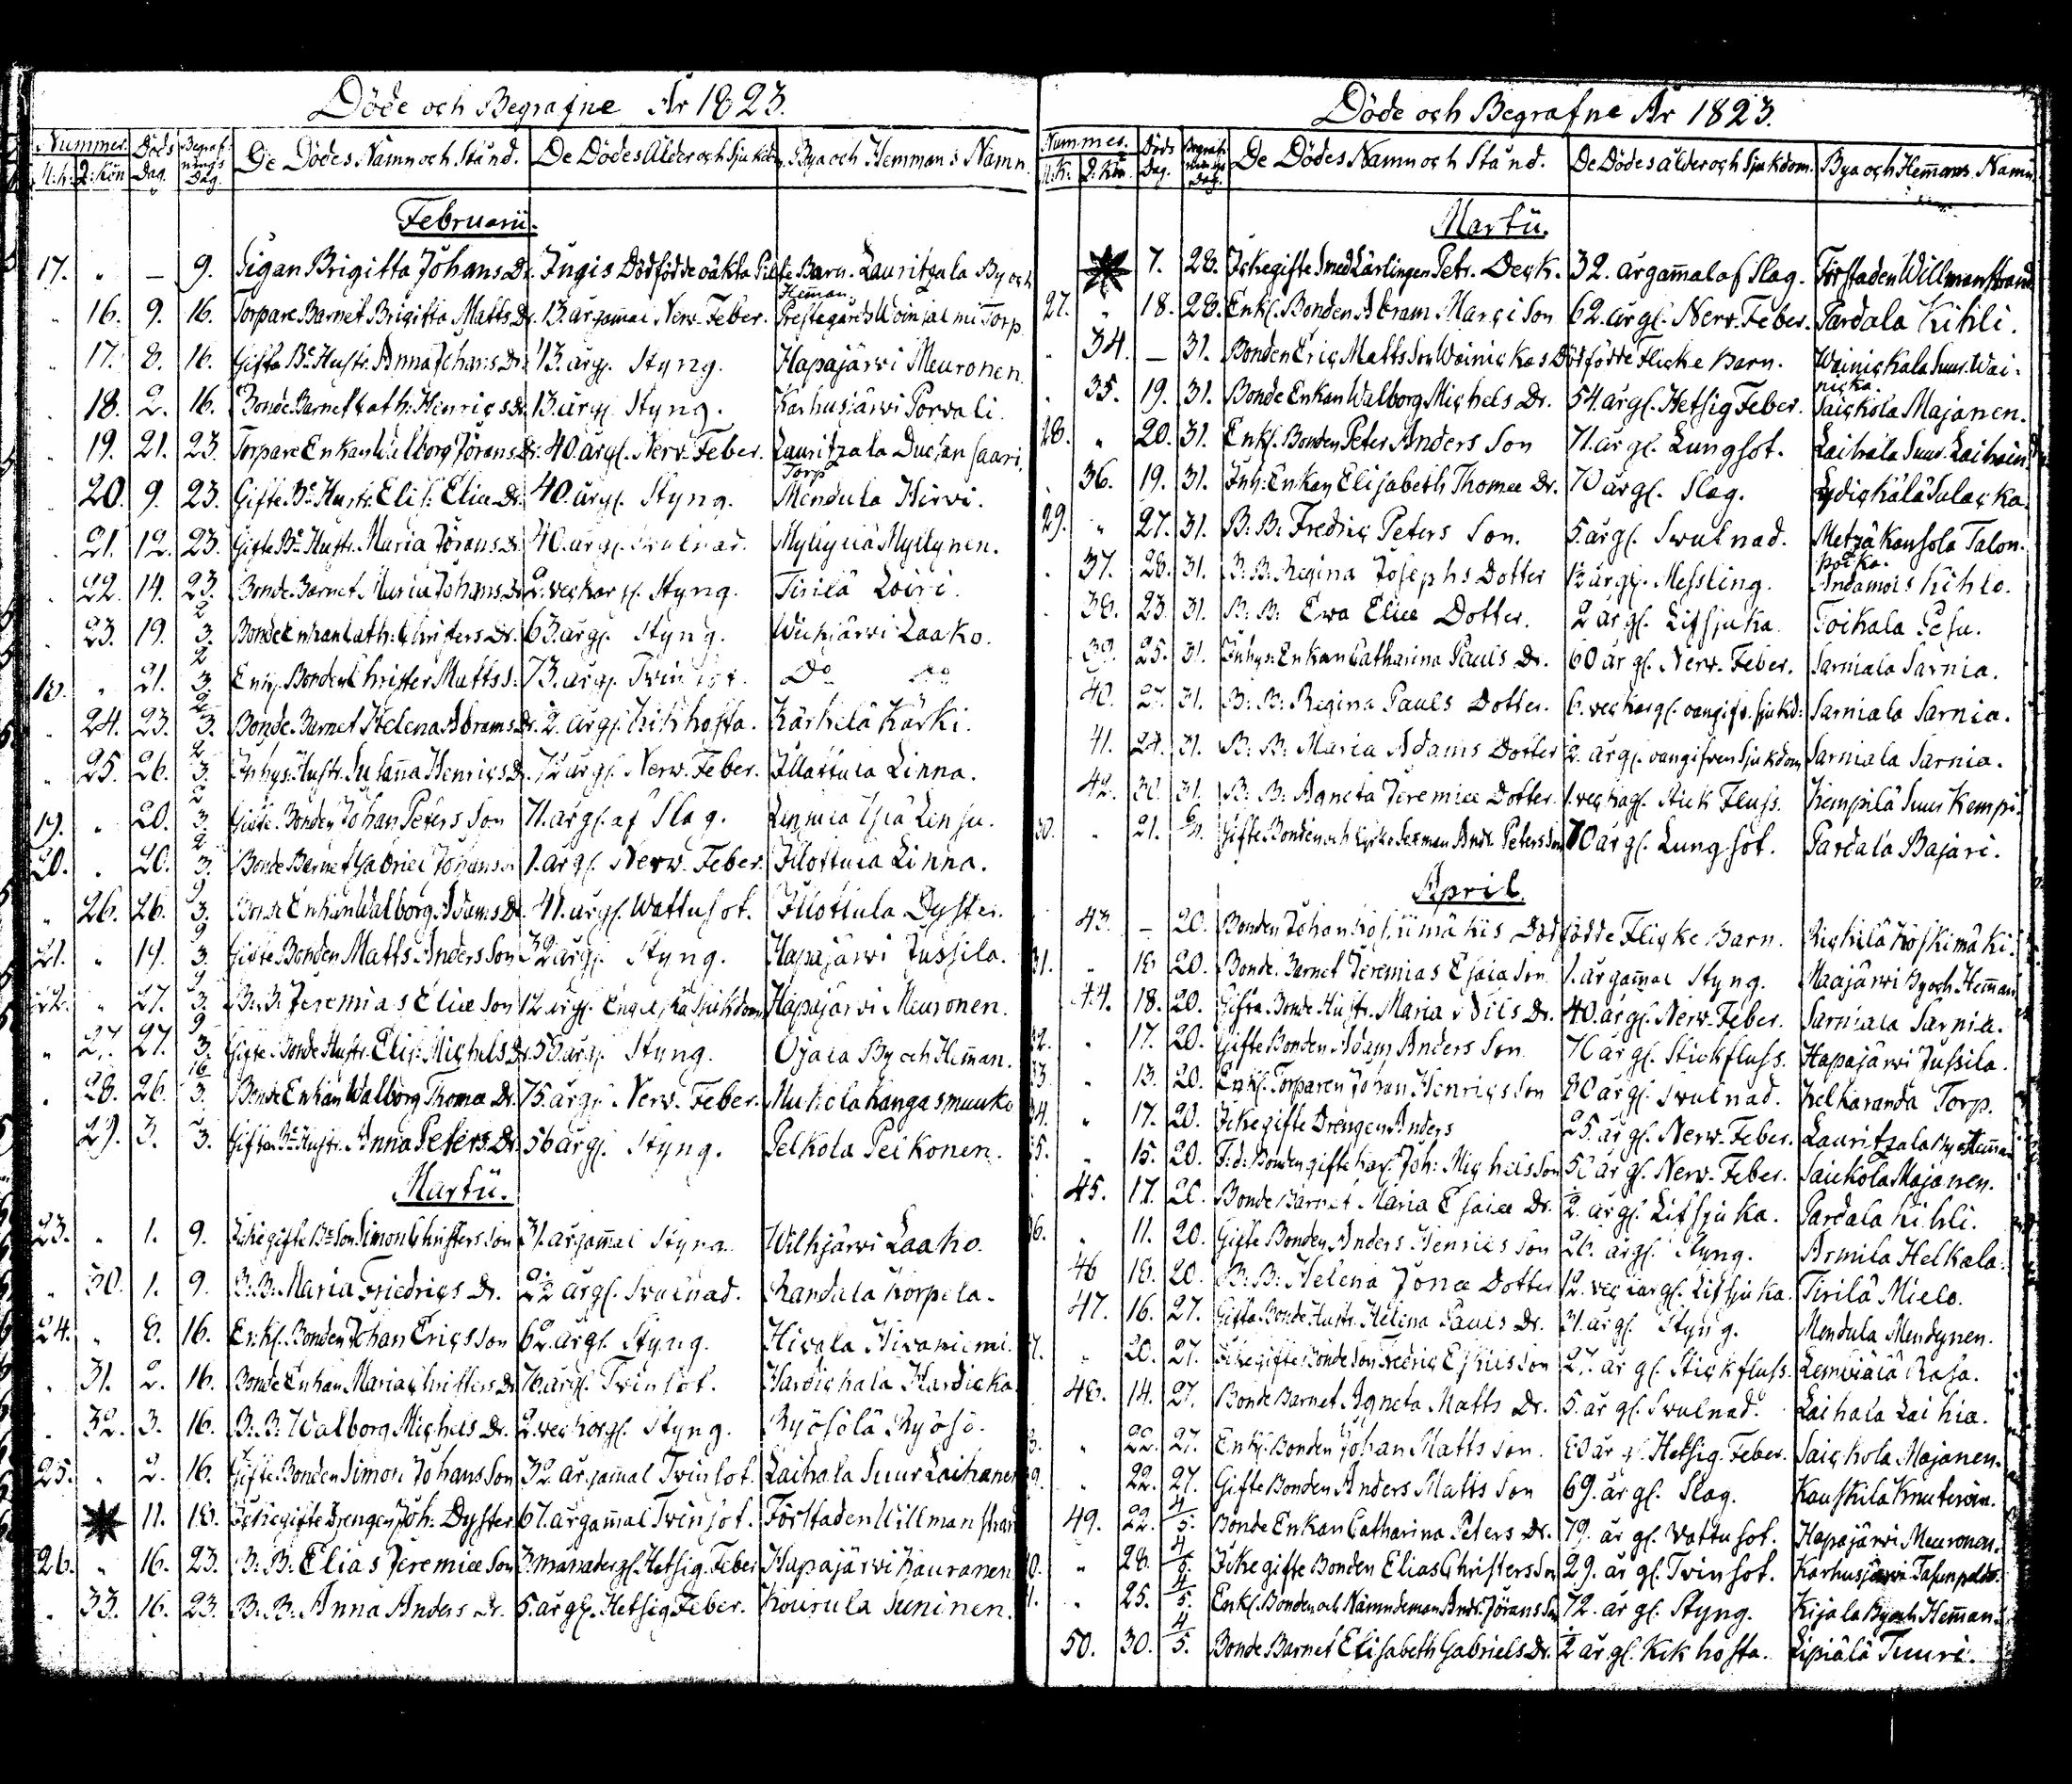 Döde och Begrafne År 1823.
Nummer. Döds Dag. Begrafnings Dag. De Dödes Namn och Stånd. De Dödes Ålder och Sjukdom Bya och Hemmans Namn.
M:k: Q:kön
Februarii.
17. „ — 9. Pigan Brigitta Johans Dr. Ingis Dödfödde oäkta Barn. Lauritzala By och Heman.
16. 9. 16. Torpare Barnet Brigitta Matts Dr. 13 årgammal Nerv. Feber. Prestegårds Torp.
17. 8. 16. Gifta Be Hustr. Anna Johans Dr. årgl. Styng. Hapajärvi Meuronen.
18. 2. 16. Bonde Barnet Cath: Hinrics Dr. årgl. Styng. Karhusjärvi Porvali.
19. 21. 23. Torpare Enkan Walborg Jörans Dr. 40 årgl. Nerv. Feber. Lauritzala saari Torp
20. 9. 23. Gifte Be Hustr. Elis: Eliæ Dr. 40. årgl. Styng. Mendula Hirvi.
21. 12. 23. Gifte Be Hustr. Maria Jörans Dr. 40. årgl. Svulnad. Myllylä Myllynen.
22. 14. 23. Bonde Barnet Maria Johans Dr. 2. veckor gl. Styng. Tirilä Loiri.
23. 19. 2/3. Bonde Enkan Cath: Christers Dr. 63. årgl. Styng. Laako.
18. „ 21. 2/3. Enkl. Bonden Christer Matts S: 73. årgl. Tvinsot. Do Do
24. 23. 2/3. Bonde Barnet Helena Abrams Dr. 2. årgl. Kikhosta. Kärkelä Kärki.
25. 26. 2/3. Inhys: Hustr. Susanna Henrics Dr. 72 årgl. Nerv. Feber. Illottula Linna.
19. „ 20. 2/3. Gifte. Bonden Johan Peters Son 71. årgl. af Slag. Lensula Lensu.
20. „ 20. 2/3. Bonde Barnet Gabriel Johans 1. årgl. Nerv. Feber. Illottula Linna.
„ 26. 26. 9/3. Bonde Enkan Walborg Adams Dr. 41. årgl. Wattusot. Illottula Dyster.
21. „ 19. 9/3. Gifte Bonden Matts Anders Son 32 årgl. Styng. Hapajärvi Jussila.
22. „ 27. 9/3. B: B: Jeremias Eliæ Son 12 årgl. Engelska Sjukdom Hapajärvi Meuronen.
„ 27. 27. 9/3. Gifte Bonde Hustr. Elis: Michels Dr. 55 årgl. Styng. Ojala By och Heman.
„ 28. 26. 16/3. Bonde Enkan Walborg Thomæ Dr. 75. årgl. Nerv. Feber. Mukola Kangasmuuko
29. 3. 3. Gifta Be Hustr. Anna Peters Dr. 56 årgl. Styng. Pelkola Pelkonen.
Martii.
23. „ 1. 9. Ickegifte Be Son Simon Christers Son 31. årgammal Styng. Wilkjärvi Laako.
„ 30. 1. 9. B: B: Maria Friedrics Dr. årgl. Svulnad. Kandula Korpela.
24. „ 8. 16. Enkl. Bonden Johan Erics Son 62. årgl. Styng. Hivala Hivaniemi.
31. 2. 16. Bonde Enkan Maria Christers Dr. 76. årgl. Tvinsot. Hardickala Hardicka.
32. 3. 16. B: B: Walborg Michels Dr. 2. veckor gl. Styng. Ryösölä Ryösö.
25. „ 2. 16. Gifte Bonden Simon Johans Son 32. årgammal Tvinsot. Laihala Suur Laihanen
11. 18. Ickegifte Drengen Joh: Dyster 67. årgammal Tvinsot. Förstaden Willmanstrand
26. „ 16. 23. B: B: Elias Jeremiæ Son 3. månader gl. Hetsig Feber Hapajärvi Kauranen
33. 16. 23. B: B: Anna Anders Dr. 5. årgl. Hetsig Feber. Kourula Suninen.
Döde och Begrafne År 1823.
Nummer. Döds Dag. Begrafnings Dag. De Dödes Namn och Stånd. De Dödes ålder och Sjukdom. Bya och Hemans Namn.
M:K: Q:Kön
Martii.
7. 28. Ickegifte Smed Lärlingen Petr. Deck. 32. årgammal af Slag. Förstaden Willmanstrand
27. „ 18. 28. Enkl. Bonden Abram Marci Son 62. årgl. Nerv. Feber. Pardala Kihli.
34. — 31. Bonden Eric Matts Son Wainickas Dödfödde Flicke Barn. Wainickala Suur. Wainicka.
35. 19. 31. Bonde Enkan Walborg Michels Dr. 54. årgl. Hetsig Feber. Saickola Majanen.
28. „ 20. 31. Enkl. Bonden Peter Anders Son 71. årgl. Lungsot. Laihala Suur. Laihain
36. 19. 31. Inh: Enkan Elisabeth Thomæ Dr. 70 årgl. Slag.
29. „ 27. 31. B: B: Fredric Peters Son. 5. årgl. Svulnad. Metzäkansola Talonpoicka.
37. 28. 31. B: B: Regina Josephs Dotter årgl. Messling. Kihlo.
38. 23. 31. B: B: Ewa Eliæ Dotter. 2 årgl. Litsjuka. Toikala Pesu.
39. 25. 31. Inhys: Enkan Catharina Pauls Dr. 60 år gl. Nerv. Feber. Sarniala Sarnia.
40. 27. 31. B: B: Regina Pauls Dotter. 6. veckor gl. oangifv. sjukd: Sarniala Sarnia.
41. 24. 31. B: B: Maria Adams Dotter årgl. oangifven Sjukdom Sarniala Sarnia.
42. 30. 31. B: B: Agneta Jeremiæ Dotter. Stick Fluss. Kempilä Suur Kempi.
30. „ 21. Gifte Bonden och Kyrko Sexman Andr. Peters Son 70 år gl. Lungsot. Pardala Bajari.
April.
43. — 20. Bonden Johan Koskimäkis Dödfödde Flicke Barn. Rickilä Koskimäki.
31. „ 18 20. Bonde. Barnet Jeremias Esaiæ Son 1. årgammal Styng. Maajärvi By och Heman
44. 18. 20. Gifta Bonde Hustr. Maria Nils Dr. 40. årgl. Nerv. Feber. Sarniala Sarnia.
32. „ 17. 20. Gifte Bonden Adam Anders Son 70 år gl. Stickfluss. Hapajärvi Jussila.
33. „ 13. 20. Enkl. Torparen Johan Henrics Son 80 årgl. Svulnad. Kelkaranda Torp.
34. „ 17. 20. Ickegifte Drengen Anders 25. år gl. Nerv. Feber. Lauritzala By o Heman
35. „ 15. 20. F:d: Bonden gifte Joh: Michels Son år gl. Nerv. Feber. Saickola Majanen.
45. 17. 20. Bonde Barnet Maria Esaiæ Dr. årgl. Litsjuka. Pardala Kihli.
36. „ 11. 20. Gifte Bonden Anders Henrics Son årgl. Styng. Armila Helkala.
46 18. 20. B: B: Helena Jonæ Dotter 12. veckor gl. Litsjuka. Tirilä Mielo.
47. 16. 27. Gifta Bonde Hustr. Helena Pauls Dr. 31. årgl. Styng. Mendula Mendynen.
37. „ 20. 27. Ickegifte Bonde Son Fredric Eskils Son 27. år gl. Stickfluss. Rasa.
48. 14. 27. Bonde Barnet Agneta Matts Dr. 5. år gl. Svulnad. Laihala Laihia.
„ 22. 27. Enkl. Bonden Johan Matts Son. 60 år gl. Hetsig. Feber. Saickola Majanen.
„ 22. 27. Gifte Bonden Anders Matts Son 69. år gl. Slag. Kauskila
49. 22. 4/5. Bonde Enkan Catharina Peters Dr. 79. år gl. Vattusot. Hapajärvi Meuronen.
„ 28. 4/5. Ickegifte Bonden Elias Christers Son 29. år gl. Tvinsot. Karhusjärvi
„ 25. 4/5. Enkl. Bonden och Nämndeman Andr. Jörans Son 72. år gl. Styng. Kijala By och Heman.
50. 30. 4/5. Bonde Barnet Elisabeth Gabriels Dr. ½ år gl. Kikhosta. Lipiälä Tuuri.